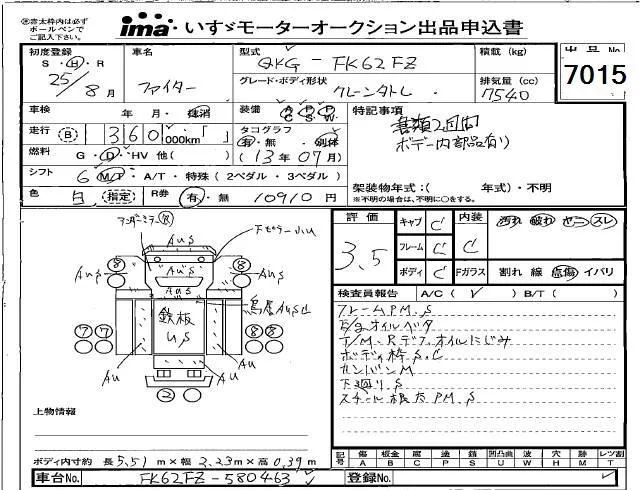 ㊟赤太枠内は必ず
ボールペンで
ご記入下さい。
ima いすゞモーターオークション出品申込書
初度登録 車名 型式 積載 (kg) 出品No
S・H・R ファイター QKG - FK62FZ 7015
25/8月 グレード・ボディ形状 排気量 (cc)
クレーン夕トし 7540
車検 年・月・抹消 装備 AC PS PW 特記事項
書類2回同
走行 B 360 000km「 」 タコグラフ ボデー内部品有り
有・無・別体
燃料 G・D・HV 他( ) (13年07月)
シフト 6 MT・A/T・特殊 (2ペダル・3ペダル) 架装物年式:( 年式)・不明
色 白 指定 R券 有・無 10910円 ※不明の場合は、不明に○をする。
評価 キャブ C 内装 汚れ 破れ コゲ スレ
3.5 フレーム C C
ボディ C Fガラス 割れ 線 点傷 イバリ
アンダーミラーR 下ピラー小U
AUS
AUS
AUS
AUS AUS
鳥居AUS凹
鉄板
US
AU AU
8 8 8 8
7 7 8 8
2
検査員報告 A/C(✓) B/T( )
フレームPM.S
E/gオイルベタ
T/M・Rデフオイルにじみ
ボディ枠S.C
カンバンM
下廻りS
スチール根太PM.S
上物情報
ボディ内寸約 長5.51m×幅2.23m×高0.39m
記号 傷 板金 腐 塗 錆 凹凸曲 波 穴 跡 レンズ割
A B C P S U W H M T
車台No. FK62FZ-580463 登録No.